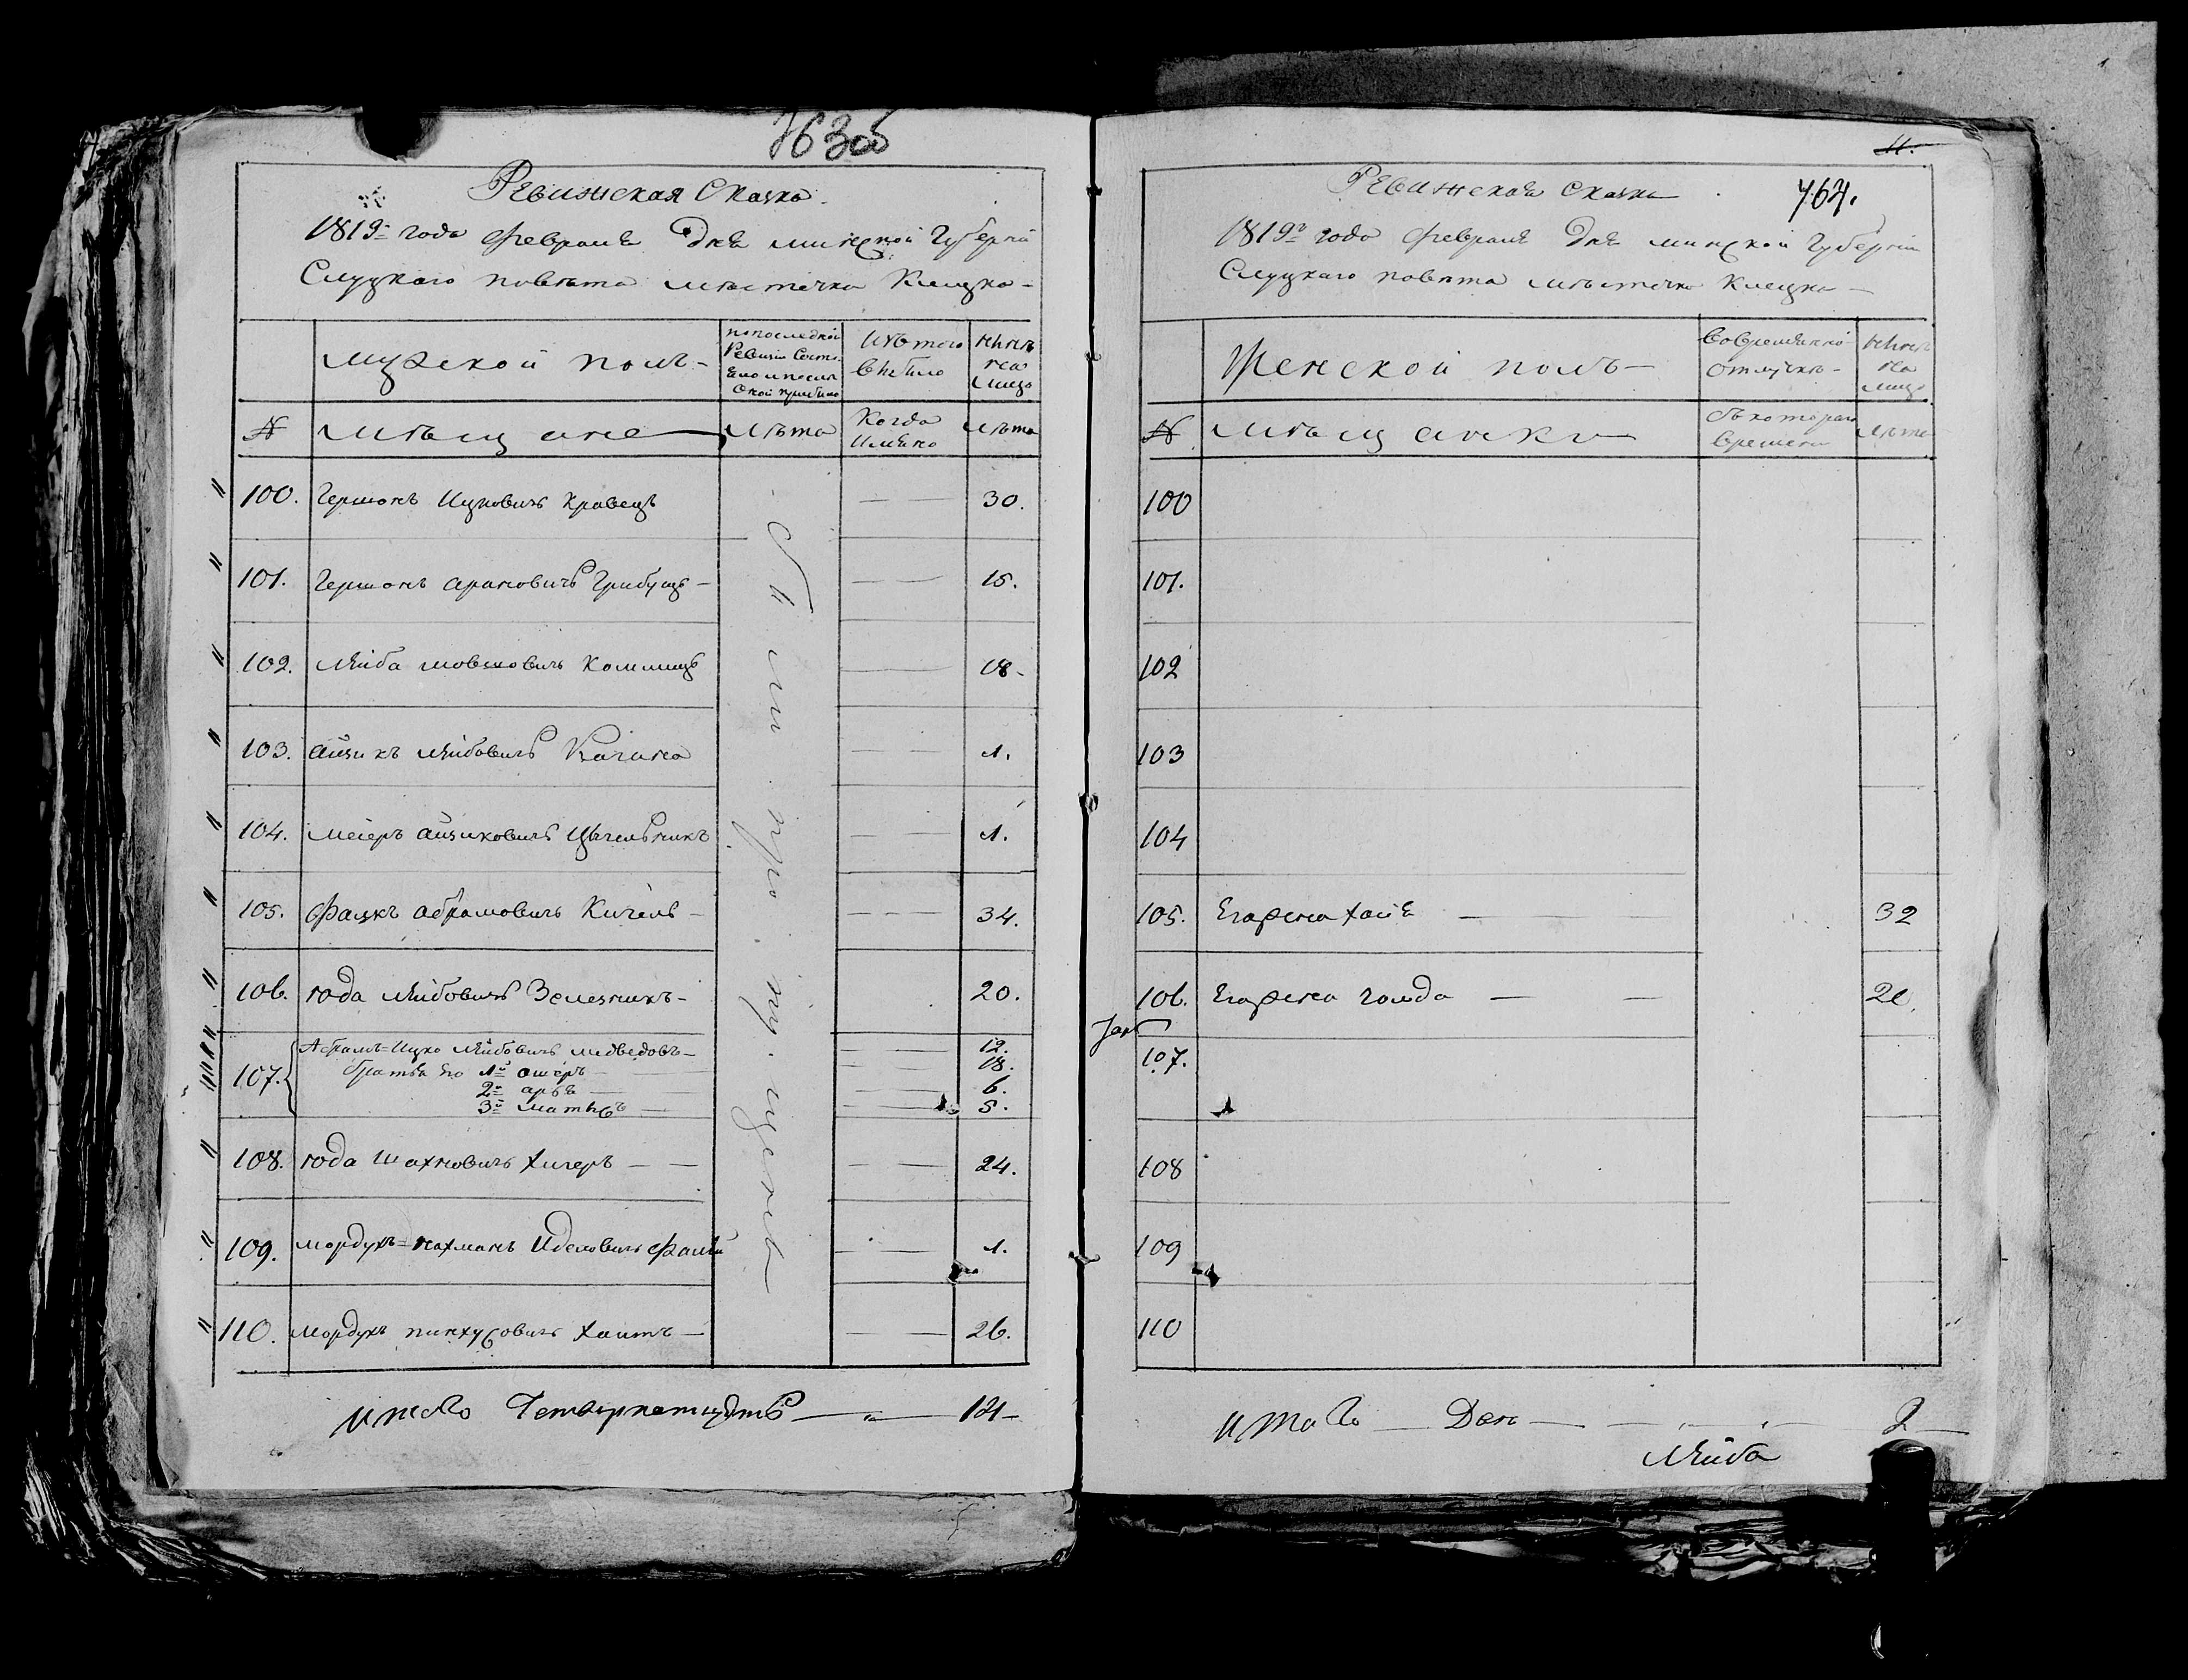 763об
Ревижская Сказка
1819го года февраля дня минской Губерніи
Слуцкаго повѣта мѣстечка Клецка
мужской полъ
попоследной Ревизіи Состояло и после оной прибыло
Изъ того выбыло
ныне на лицо
№ мѣщане
Лѣта
Когда Имянно
Лѣта
100. Гершонъ Ицковичъ Кравецъ — 30.
101. Гершонъ арановичъ Грибуцъ — 15.
102. Лейба шовшовичъ — 18.
103. айзикъ Лейбовичъ Качана — 1.
104. меіеръ айзиковичъ Цыгельникъ — 1.
105. Фалкъ абрамовичъ Кигель — 34.
106. года Лейбовичъ Зелезникъ — 20.
107. Абрамъ=Ицко Лейбовичъ медведовъ — 12.
братья Его 1й ошеръ — 18.
2й арья — 6.
3й матысъ — 5.
108. года Шахновичъ Хигеръ — 24.
109. мордухъ=нахманъ Иделовичъ — 1.
110. мордухъ пинхусовичъ Хаитъ — 26.
Были пропущены
Итого Четырнатцать — 14
11.
764.
Ревижская Сказка
1819го года февраля дня минской Губерніи
Слуцкаго повѣта мѣстечка Клецка —
Женской полъ —
Вовременно Отлучкѣ —
ныне на лицо
№ мѣщанки
Съ котораго времени
Лѣта
100
101.
102
103
104
105. Егожена хаия — 32
106. Егожена голда — 20.
107.
108
109
110
Итого — Две — 2
Лейба